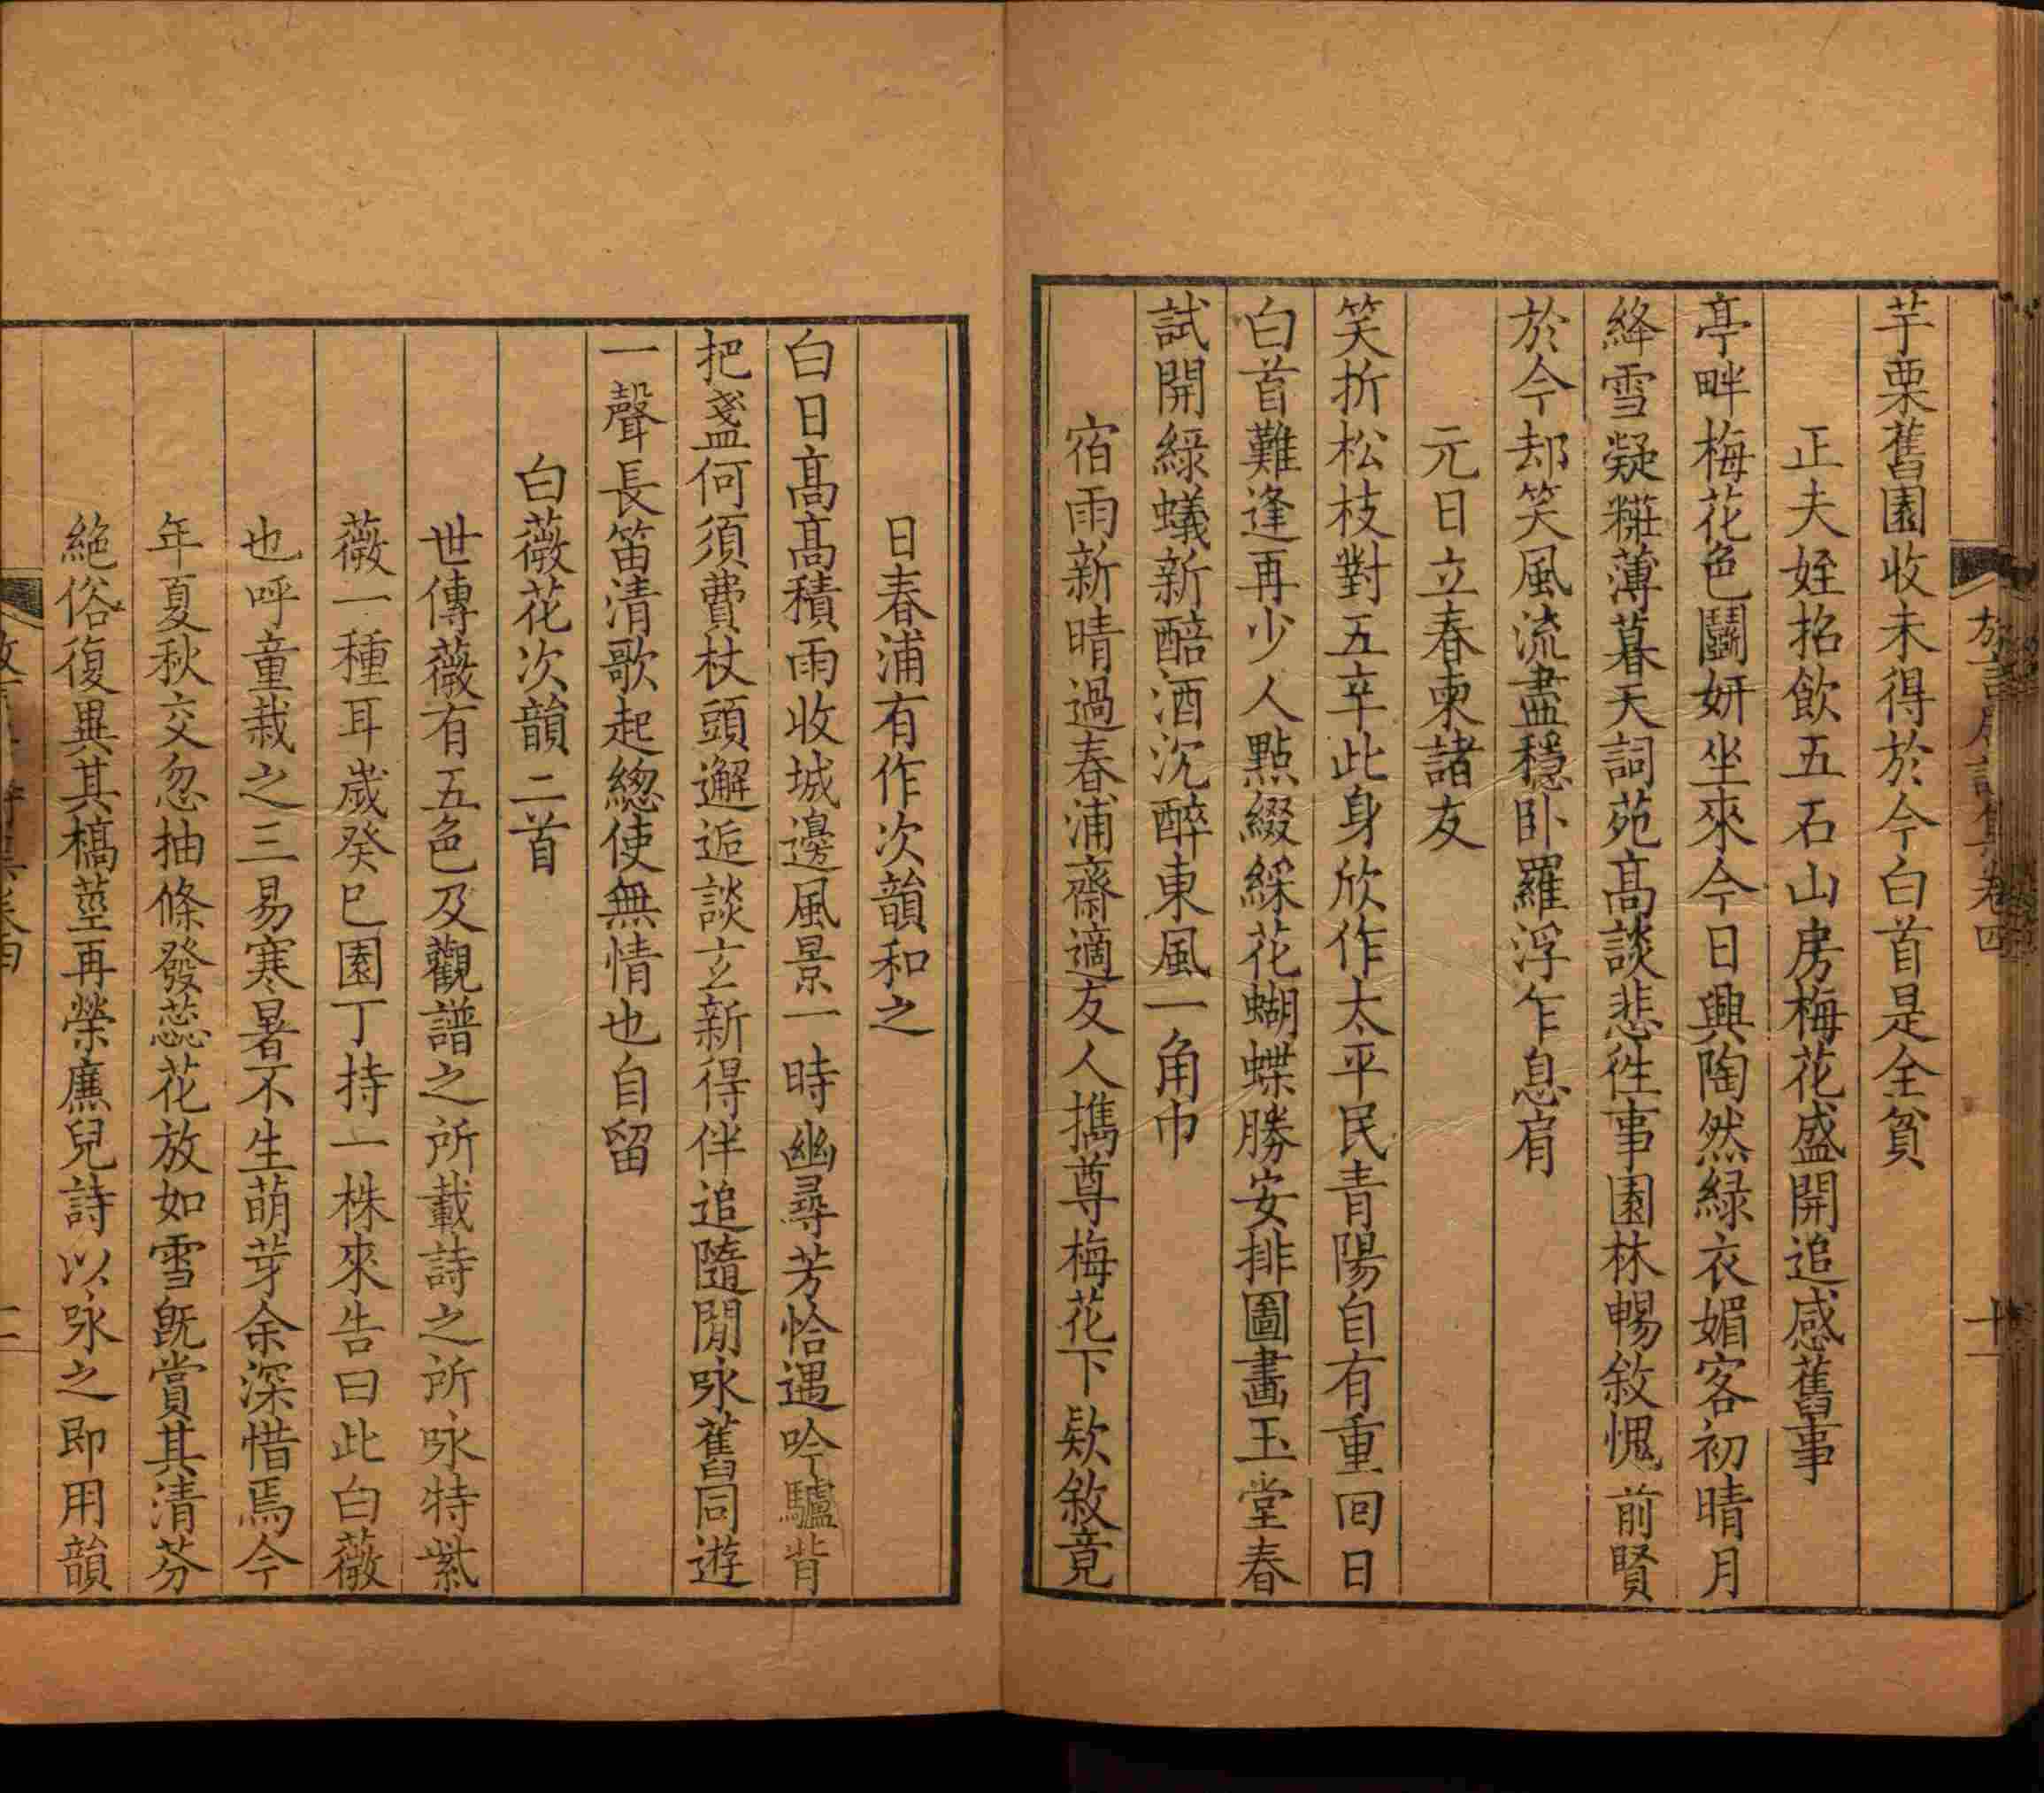 芋栗舊園收未得於今白首是全貧
正夫姪招飲五石山房梅花盛開追感舊事
亭畔梅花色鬪妍坐來今日興陶然緑衣媚客初晴月
絳雪凝糚薄暮天詞苑高談悲徃事園林暢敘愧前賢
於今却笑風流盡穩卧羅浮乍息肩
元日立春柬諸友
笑折松枝對五辛此身欣作太平民青陽自有重回日
白首難逢再少人點綴綵花蝴蝶勝安排圖畫玉堂春
試開緑蟻新醅酒沉醉東風一角巾
宿雨新晴過春浦齋適友人攜尊梅花下欵敘竟
日春浦有作次韻和之
白日高高積雨收城邊風景一時幽尋芳恰遇吟驢背
把盞何須費杖頭邂逅談玄新得伴追隨閒咏舊同遊
一聲長笛清歌起總使無情也自留
白薇花次韻二首
世傳薇有五色及觀譜之所載詩之所咏特紫
薇一種耳歲癸巳園丁持一株來告曰此白薇
也呼童栽之三易寒暑不生萌芽余深惜焉今
年夏秋交忽抽條發蕊花放如雪旣賞其清芬
絶俗復異其槁莖再榮廡兒詩以咏之即用韻